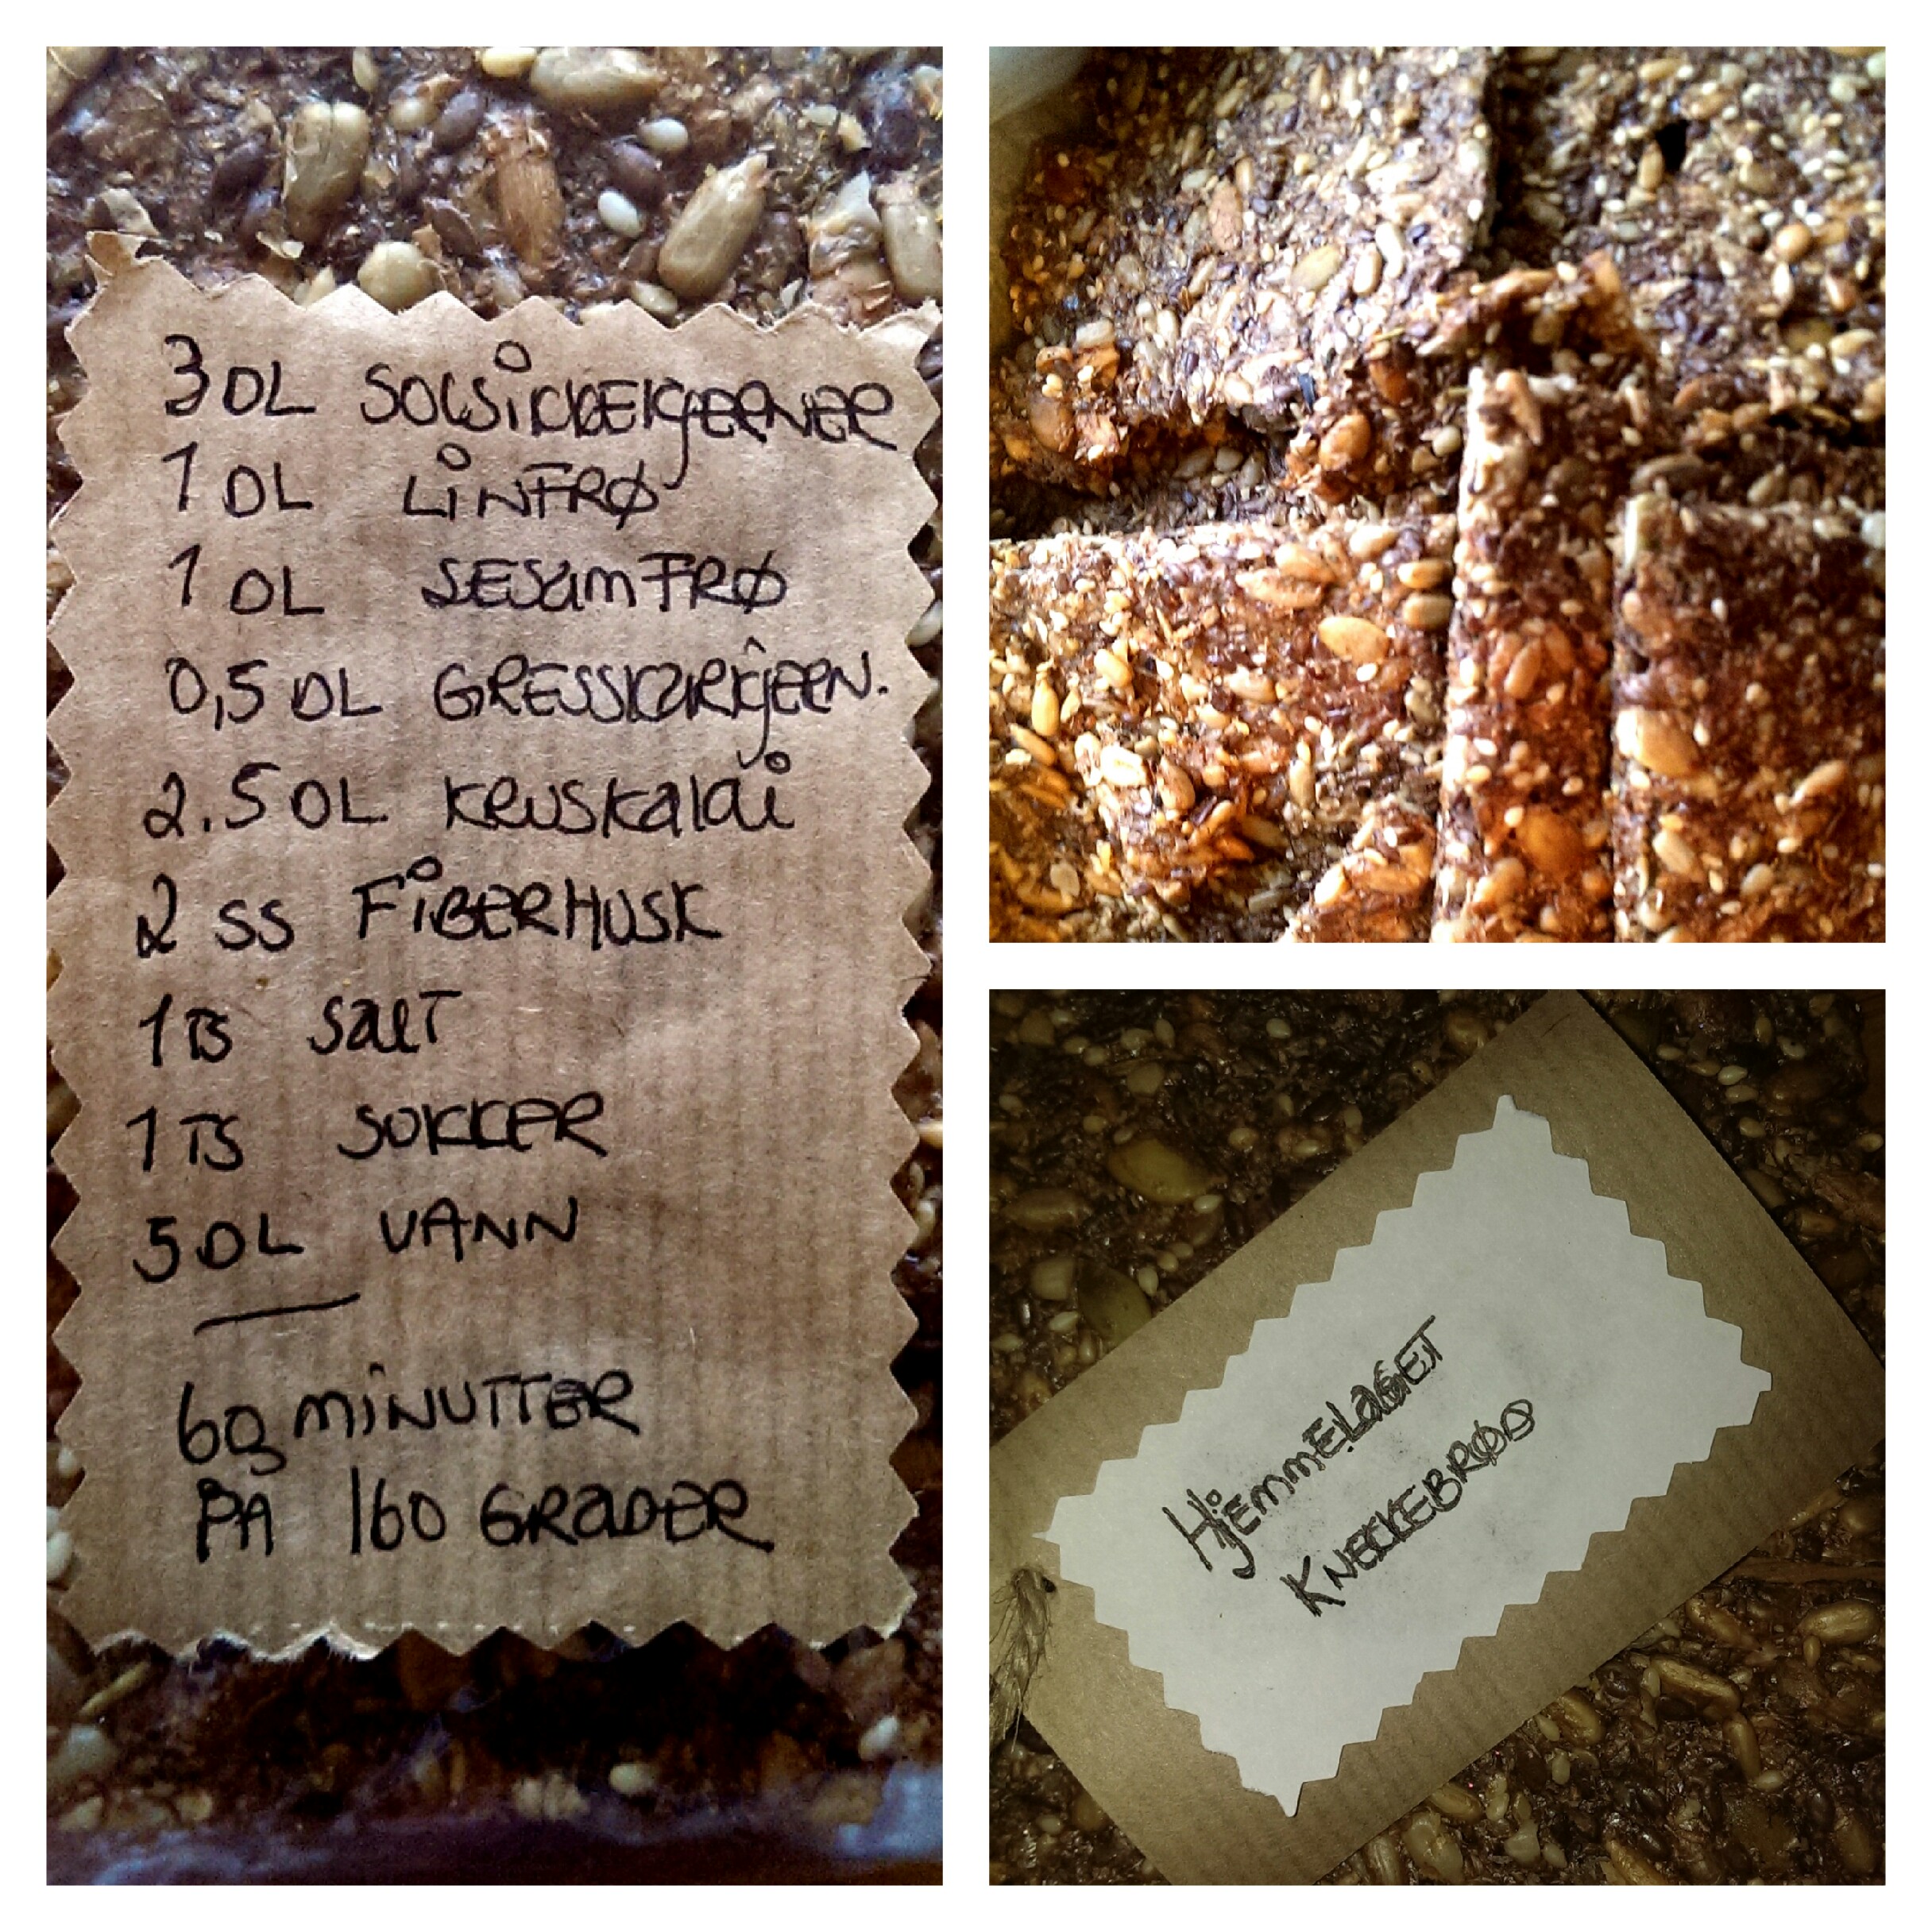 3 DL SOLSiKKEKjERNER
1 DL LiNFRØ
1 DL SESAMFRØ
0,5 DL GRESSKARKjERN.
2.5 DL KRUSKALAi
2 SS FiBERHUSK
1 TS SALT
1 TS SUKKER
5 DL VANN
60 MiNUTTER
PÅ 160 GRADER
HjEMMELAGET
KNEKKEBRØD